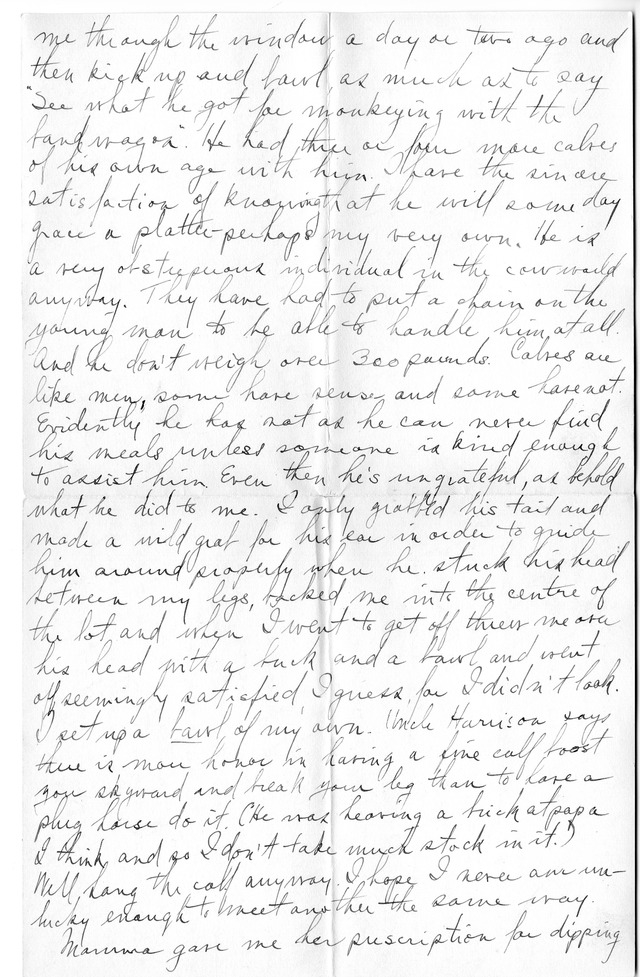 me through the window a day or two ago and
then kick up and bawl as much as to say
"See what he got for monkeying with the
band wagon". He had three or four more calves
of his own age with him. I have the sincere
satisfaction of knowing that he will some day
grace a platter-perhaps my very own. He is
a very obstreperous individual in the cow world
anyway. They have had to put a chain on the
young man to be able to handle him at all.
And he don't weigh over 300 pounds. Calves are
like men, some have sense and some have not.
Evidently he has not as he can never find
his meals unless someone is kind enough
to assist him. Even then he's ungrateful, as behold
what he did to me. I only grabbed his tail and
made a wild grab for his ear in order to guide
him around properly when he stuck his head
between my legs, backed me into the centre of
the lot and when I went to get off threw me over
his head with a buck and a bawl and went
off seemingly satisfied, I guess, for I didn't look.
I set up a bawl of my own. Uncle Harrison says
there is more honor in having a fine calf boost
you skyward and break your leg than to have a
plug horse do it. (He was heaving a brick at papa
I think and so I don't take much stock in it.)
Well, hang the calf anyway. I hope I never am un-
lucky enough to meet another the same way.
Mamma gave me her prescription for dipping